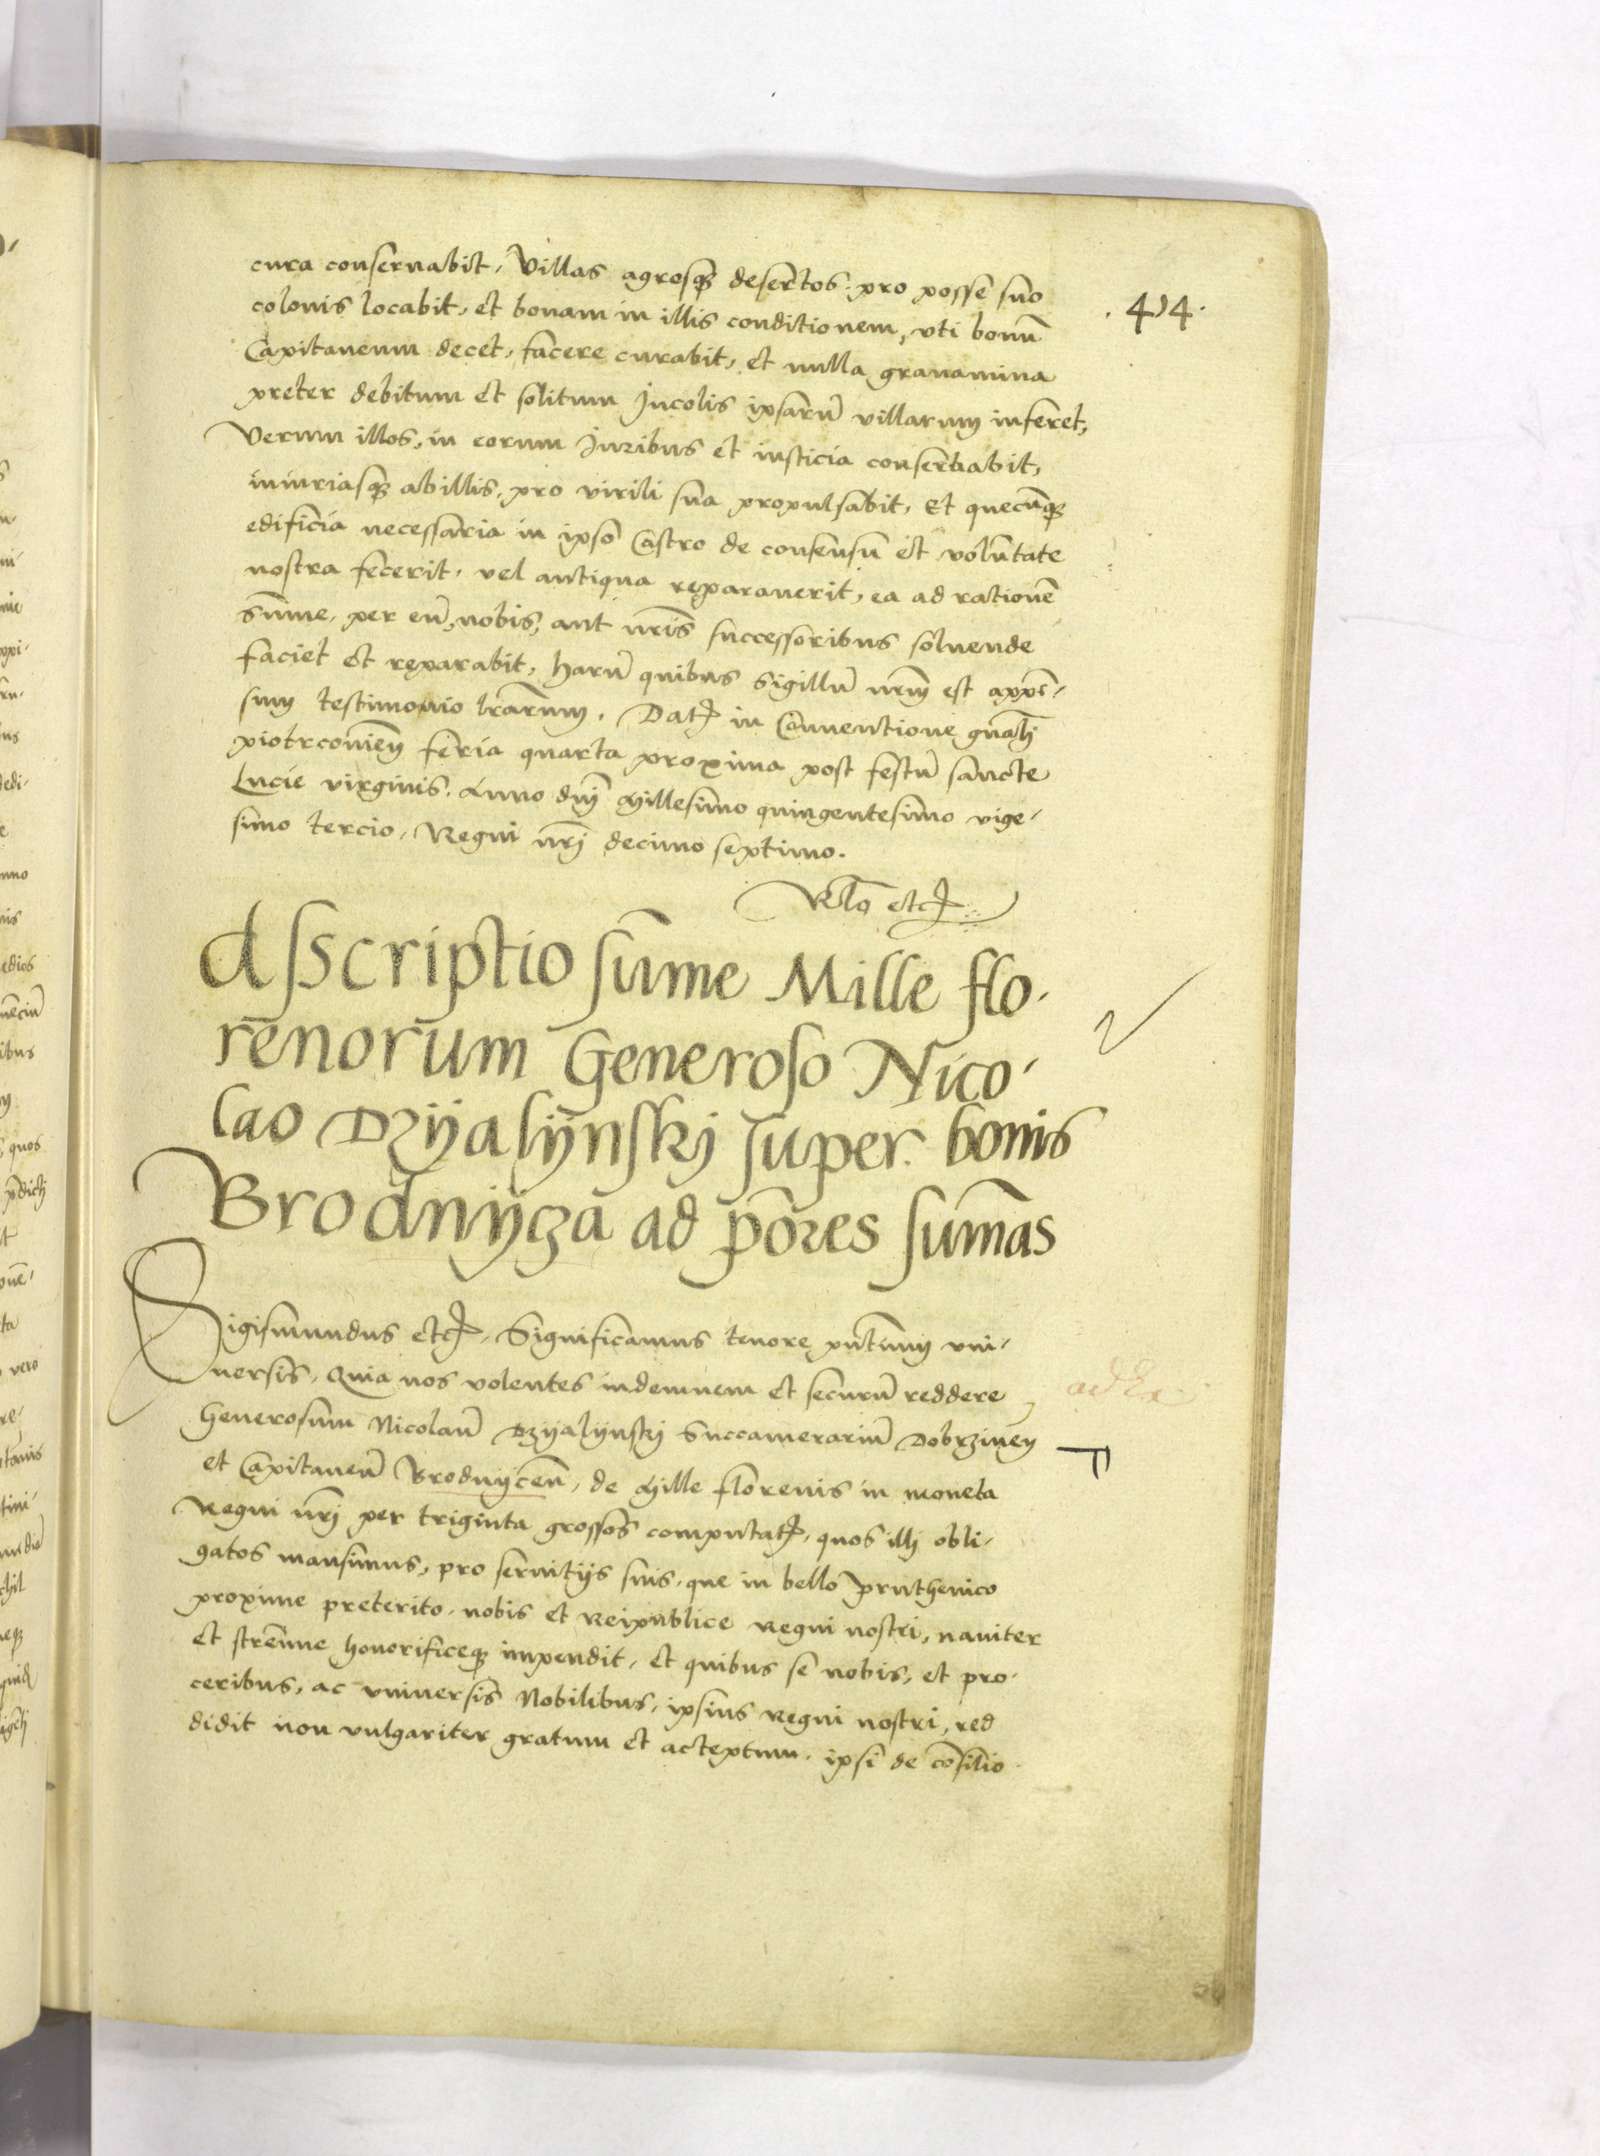 cura conseruabit, Villas agrosq₃ desertos pro posse suo
colonis locabit, et bonam in illis conditionem, vti bonū
Capitaneum decet, facere curabit, et nulla grauamina
preter debitum et solitum Incolis ipsarū villarum inferet,
Verum illos, in eorum Iuribus et iusticia conseruabit,
iniuriasq₃ ab illis, pro virili sua propulsabit, Et quecūq₃
edificia necessaria in ipso Castro de consensu et voluntate
nostra fecerit, vel antiqua reparauerit, ea ad rationē
sūme, per eū, nobis, aut nrīs successoribus soluende
faciet et reparabit, harū quibus Sigillū nrm̄ est appē-
sum testimonio lrārum. Datꝭ in Conuentione gnāli
piotrconieñ feria quarta proxima post festū sancte
Lucie virginis. Anno dnī Millesimo quingentesimo vige-
simo tercio, Regni nrī decimo septimo.
Rlō etcꝭ
Asscriptio sūme Mille flo-
renorum Generoso Nico-
lao Dzÿalÿnskj super bonis
Brodnÿcza ad p̄ores sum̄as
Sigismundus etcꝭ. Significamus tenore pn̄tium vni-
uersis, Quia nos volentes indemnem et securū reddere
Generosum Nicolaū Dzÿalÿnskj Succamerariū Dobrzineñ
et Capitaneū Brodnÿceñ, de Mille florenis in moneta
Regni nrī per triginta grossos computatꝭ, quos illi obli-
gatos mansimus, pro seruitÿs suis, que in bello pruthenico
proxime preterito, nobis et Reipublice Regni nostri, nauiter
et strēnue honorificeq₃ impendit, et quibus se nobis, et pro-
ceribus, ac vniuersis Nobilibus, ipsius Regni nostri, red
didit non vulgariter gratum et acceptum, ipsi de cōsilio
414.